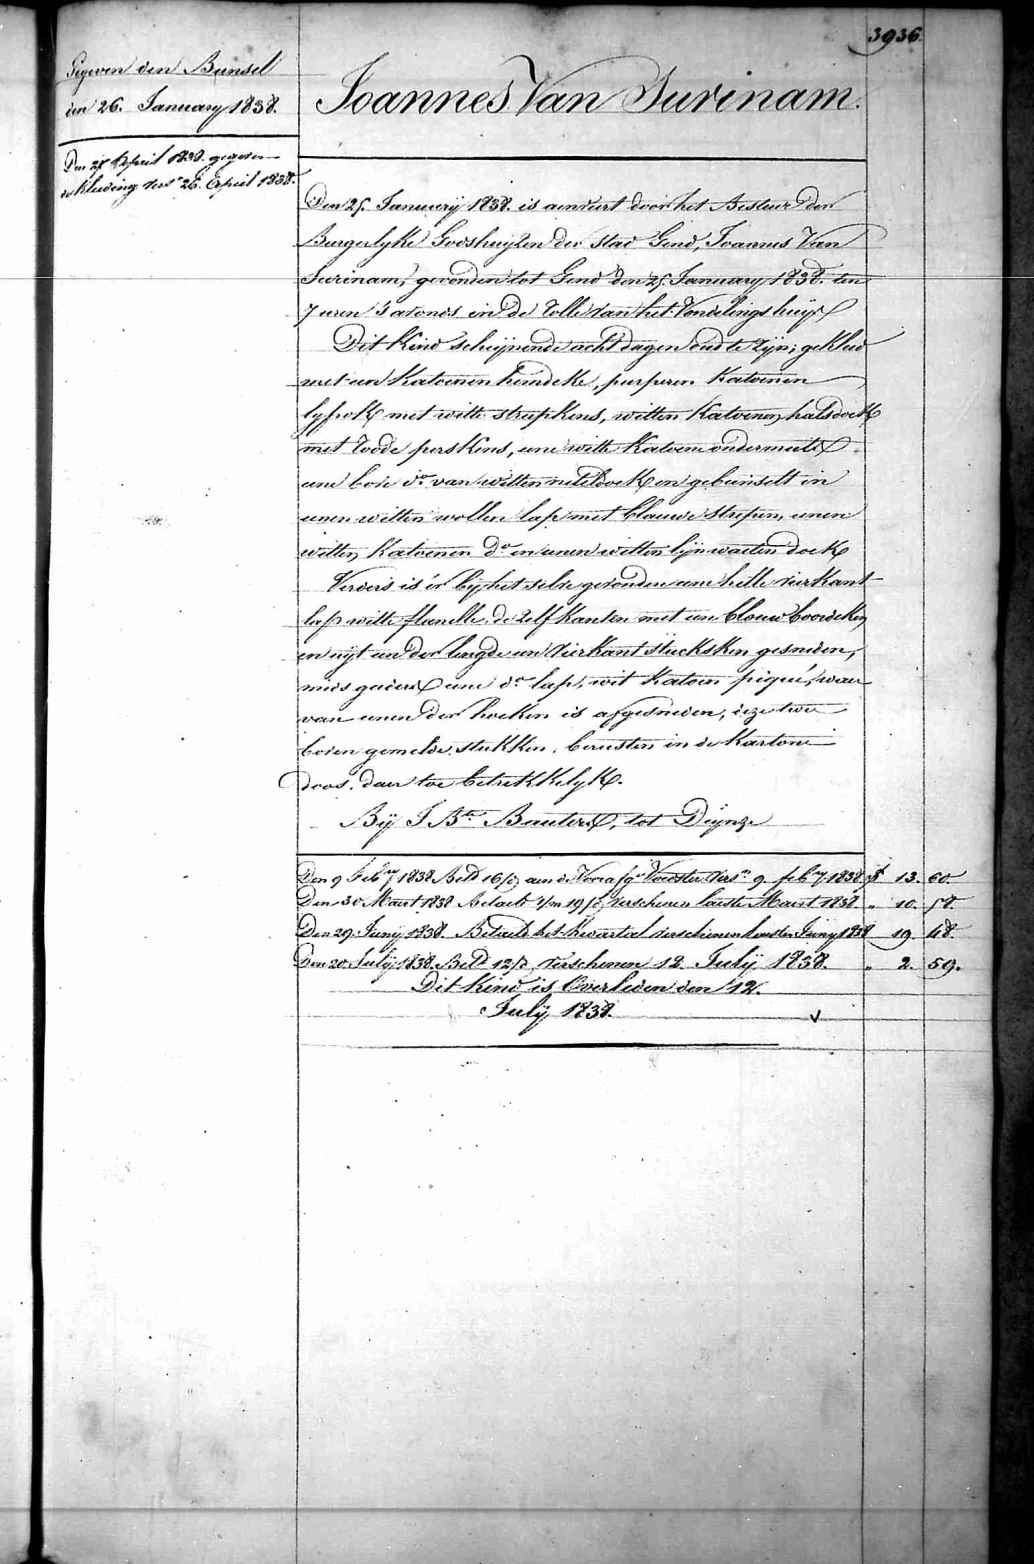 3936.
Gegeven den Bunsel
den 26. January 1838.
Den 28 April 1838. gegeven
de kleeding vers.n 26. April 1838.
Joannes Van Surinam.
Den 25. Januarij 1838. is aenveert door het Bestuer der
Burgerlyke Godshuyzen der stad Gend, Joannes Van
Surinam, gevonden tot Gend den 25. January 1838. ten
7 uren s'avonds in de Rolle van het Vondelings huys
Dit kind schijnende acht dagen oud te zijn; gekleed
met een katoenen hemdeke, purperen katoenen
lyfrok met witte streepkens, witten katoenen halsdoek
met roode perskens, eene witte katoene ondermuts
eene bove d.o van witten neteldoek en gebunselt in
eenen witten wollen lap met blauwe strepen, eenen
witten katoenen d.o en eenen witten lijnwaeten doek
Verders is'er bij het selve gevonden eene helle vierkante
lap witte flanelle, de zelfkanten met een blouw boordeken
en uijt een der lengde een vierkant stucksken gesneden,
mids gaders eene d.o lap, wit katoen piqué, waer
van eenen der hoeken is afgesneden, deze twee
boven gemelde stukken, berusten in de kartone
doos, daer toe betrekkelyk.
Bij J B.te Bauters, tot Deijnze
Den 9 Feb.ry 1838 Bet.d 16/d aen de Voorafg.e Voedster vers.n 9. feb.ry 1838. f 13. 60.
Den 30 Maert 1838 betaelt 19/d verschenen laeste Maert 1838. " 10. 58.
Den 29. Junij 1838. Betaelt het kwartael verschenen laesten Junij 1838 19. 48.
Den 20. Julij 1838. Bet.d 12/d verschenen 12 Julij 1838. " 2. 59.
Dit kind is Overleden den 12.
Julij 1838.